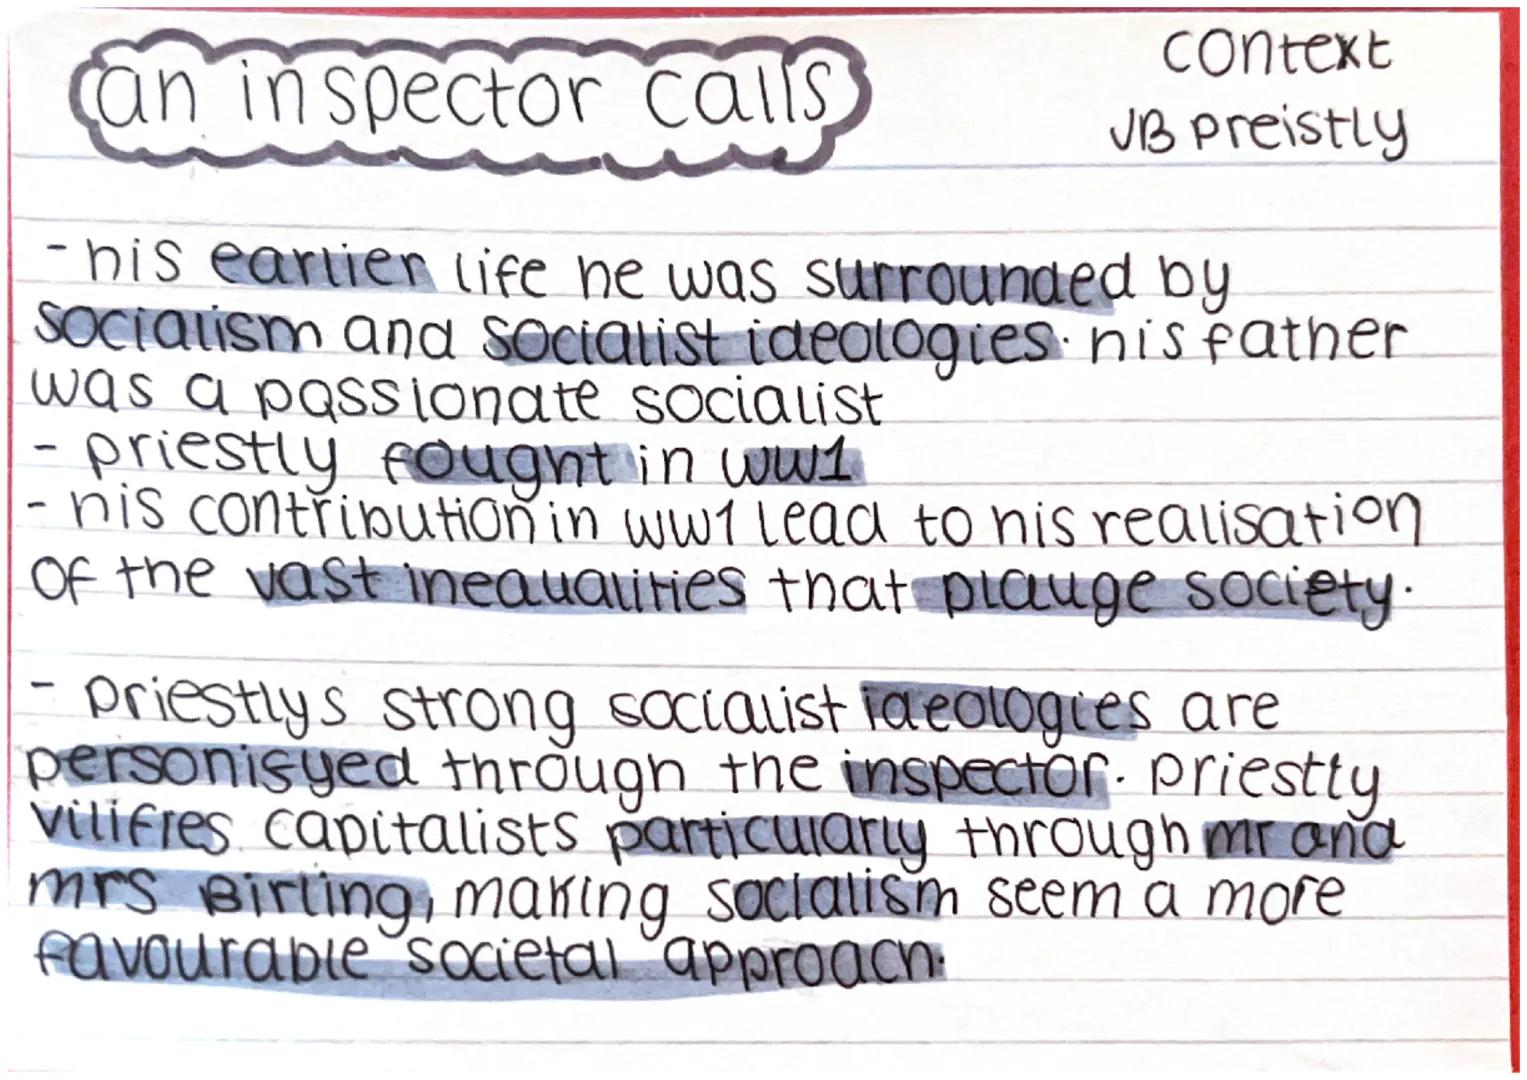 an inspector calls
context
JB preistly
- his earlier life he was surrounded by
socialism and socialist ideologies. his father
was a passionate socialist
- priestly fought in ww1
- his contribution in ww1 lead to his realisation
of the vast inequalities that plauge society.
- priestlys strong socialist ideologies are
personisyed through the inspector. priestly
vilifies capitalists particularly through mr and
mrs Birling, making socialism seem a more
favourable societal approach.